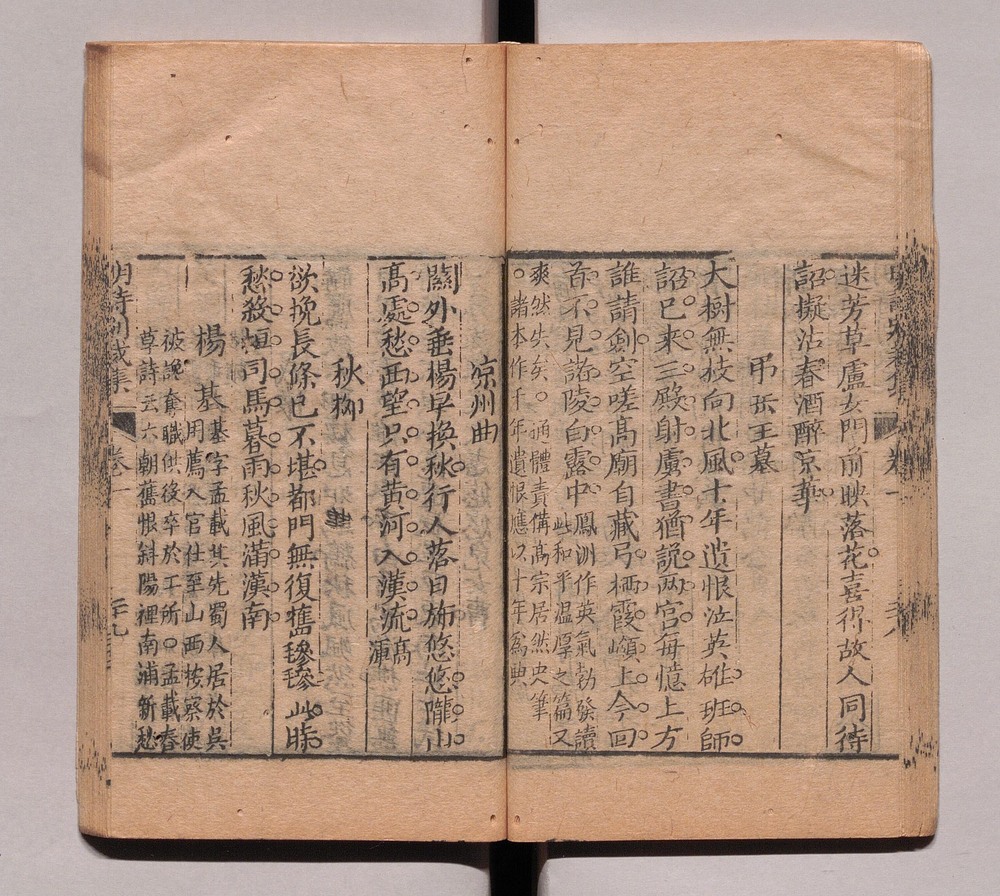 迷芳草盧女門前映落花喜得故人同待
詔擬沽春酒醉京華
吊岳王墓
大樹無枝向北風十年遺恨泣英雄班師
詔已來三殿射虜書猶說兩宮每憶上方
誰請劍空嗟高廟自藏弓栖霞嶺上今回
首不見諸陵白露中此和平温厚之篇又鳳洲作英氣勃發讀
爽然失矣。通體責備高宗居然史筆
。諸本作千年遺恨應以十年為典
凉州曲
關外垂楊早換秋行人落日旆悠悠隴山
高處愁西望只有黃河入漢流高渾
秋柳
欲挽長條已不堪都門無復舊毿毿此時
愁殺桓司馬暮雨秋風滿漢南
楊基基字孟載其先蜀人居於吳
用薦入官仕至山西按察使
被讒奪職供役卒於工所。孟載春
草詩云六朝舊恨斜陽裡南浦新愁
明詩別裁集
卷一
二十九